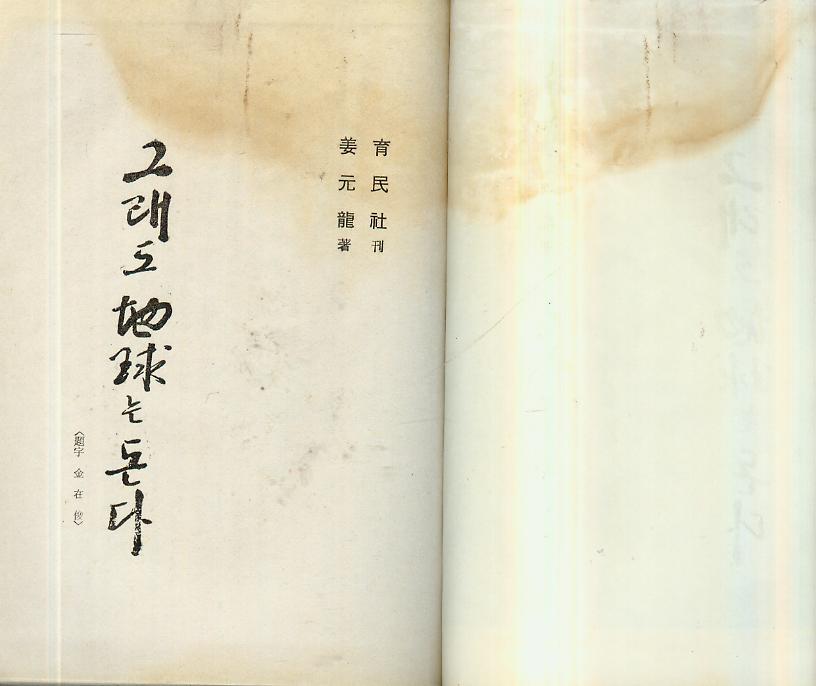 育民社 刊
姜元龍 著
그래도 地球는 돈다
〈題字 金在俊〉